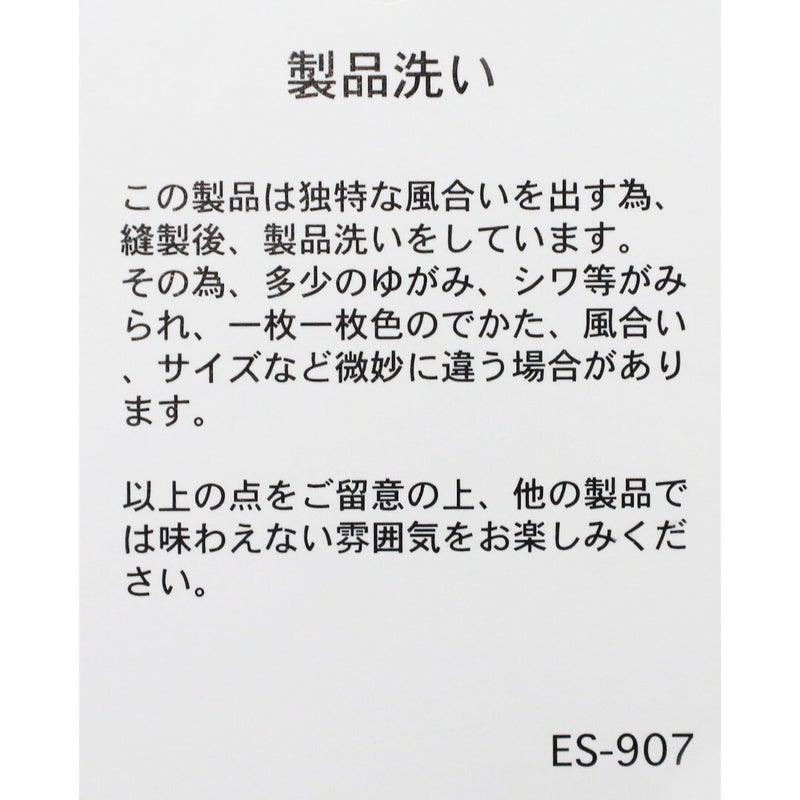 製品洗い
この製品は独特な風合いを出す為、
縫製後、製品洗いをしています。
その為、多少のゆがみ、シワ等がみ
られ、一枚一枚色のでかた、風合い
、サイズなど微妙に違う場合があり
ます。
以上の点をご留意の上、他の製品で
は味わえない雰囲気をお楽しみくだ
さい。
ES-907